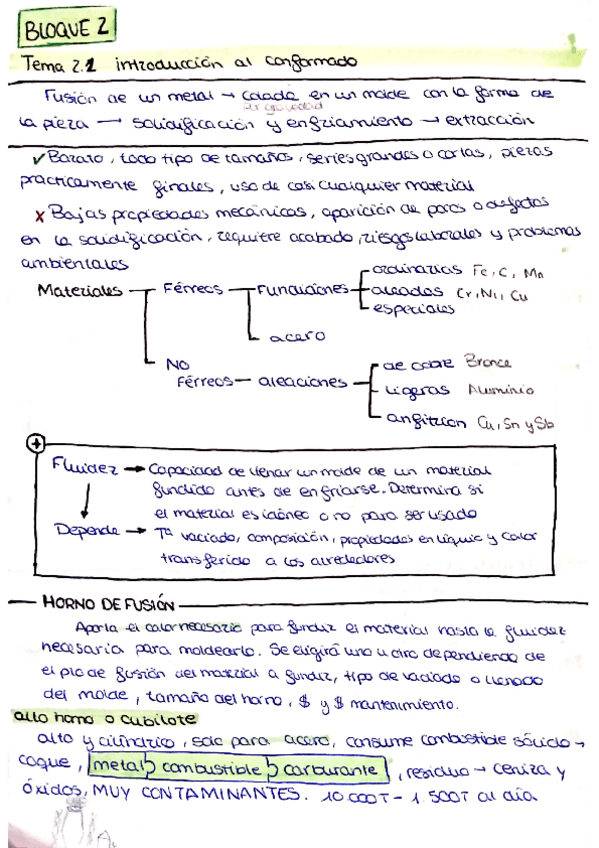 BLOQUE 2
Tema 2.1 introducción al conformado
Fusión de un metal → colada en un molde con la forma de
por gravedad
la pieza → solidificación y enfriamiento → extracción
✓ Barato, todo tipo de tamaños, series grandes o cortas, piezas
prácticamente finales, uso de casi cualquier material
x Bajas propiedades mecánicas, aparición de poros o defectos
en la solidificación, requiere acabado, riesgs laborales y problemas
ambientales
Materiales Férreos Fundiciones ordinarias Fe, C, Mn
aleadas Cr, Ni, Cu
especiales
acero
No
Férreos aleaciones de cobre Bronce
Ligeras Aluminio
antifriccion Cu, Sn y Sb
+
Fluidez → Capacidad de llenar un molde de un material
fundido antes de enfriarse. Determina si
el material es idóneo o no para ser usado
Depende → Tª vaciado, composición, propiedades en líquido y calor
transferido a los alrededores
HORNO DE FUSIÓN
Aporta el calor necesario para fundir el material hasta la fluidez
necesaria para moldearlo. Se eligirá uno u otro dependiendo de
el pto de fusión del material a fundir, tipo de vaciado o llenado
del molde, tamaño del horno, $ y $ mantenimiento.
alto horno o cubilote
alto y cilíndrico, solo para acero, consume combustible sólido →
coque, metal combustible carburante, residuo → ceniza y
óxidos, MUY CONTAMINANTES. 10.000T - 1.500T al día